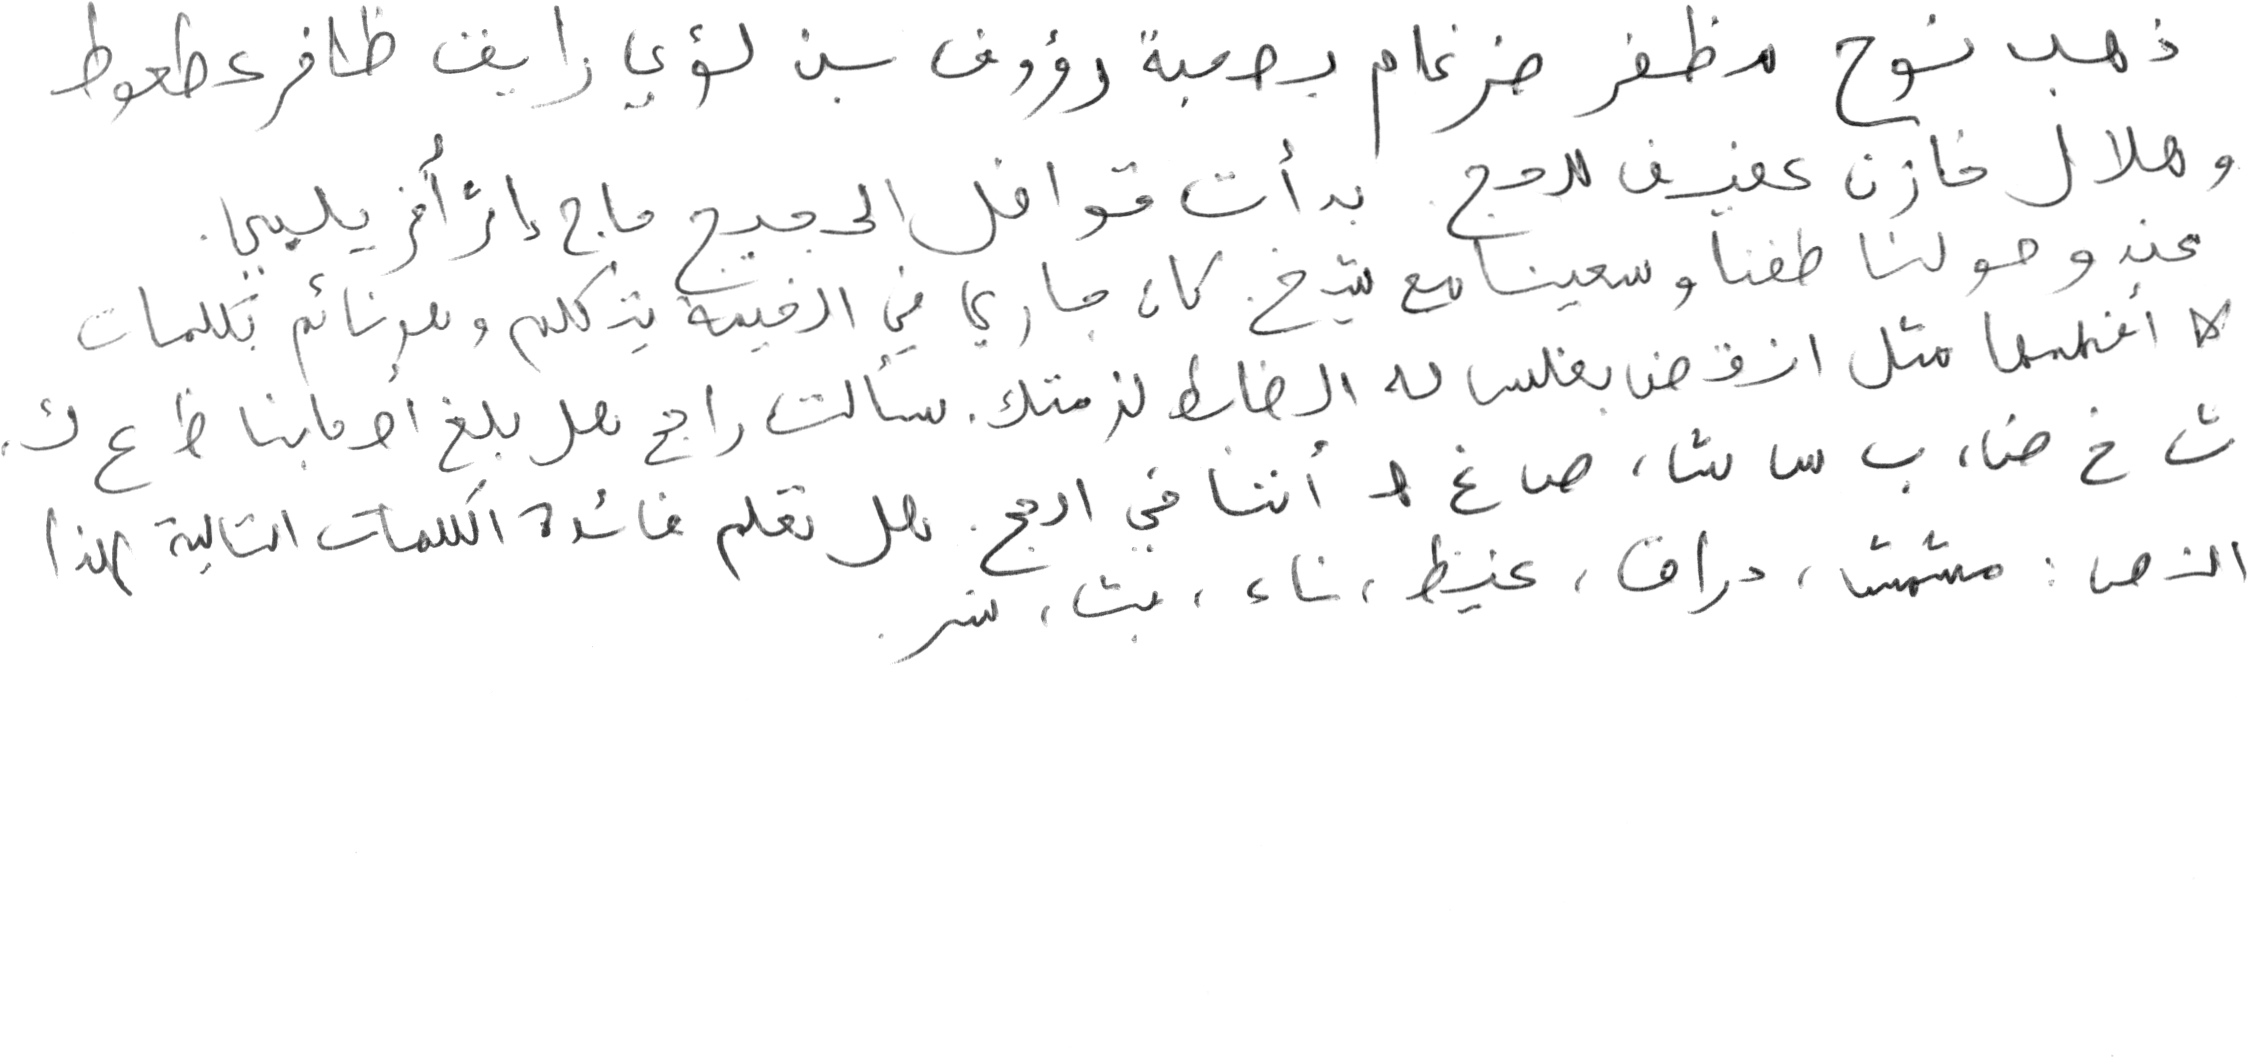 ذهب نوح مظفر ضرغام بصحبة رؤوف بن لؤي رايق ظافر عطعوط
وهلال خازن عفيف للحج. بدأت قوافل الحجيج حاج إثر أخر يلبي.
عند وصولنا طفنا وسعينا مع شيخ. كان جاري في الخيمة يتكلم وهو نائم بكلمات
لا أفهمها مثل انزقض بغلس له الضاظ لزمتك. سألت راجح هل بلغ أصحابنا ظ ع ك.
ث خ ض، ب س ش، ص غ ه أننا في الحج. هل تعلم فائدة الكلمات التالية لهذا
النص: مشمش، دراق، غيظ، ناء، بث، شر.